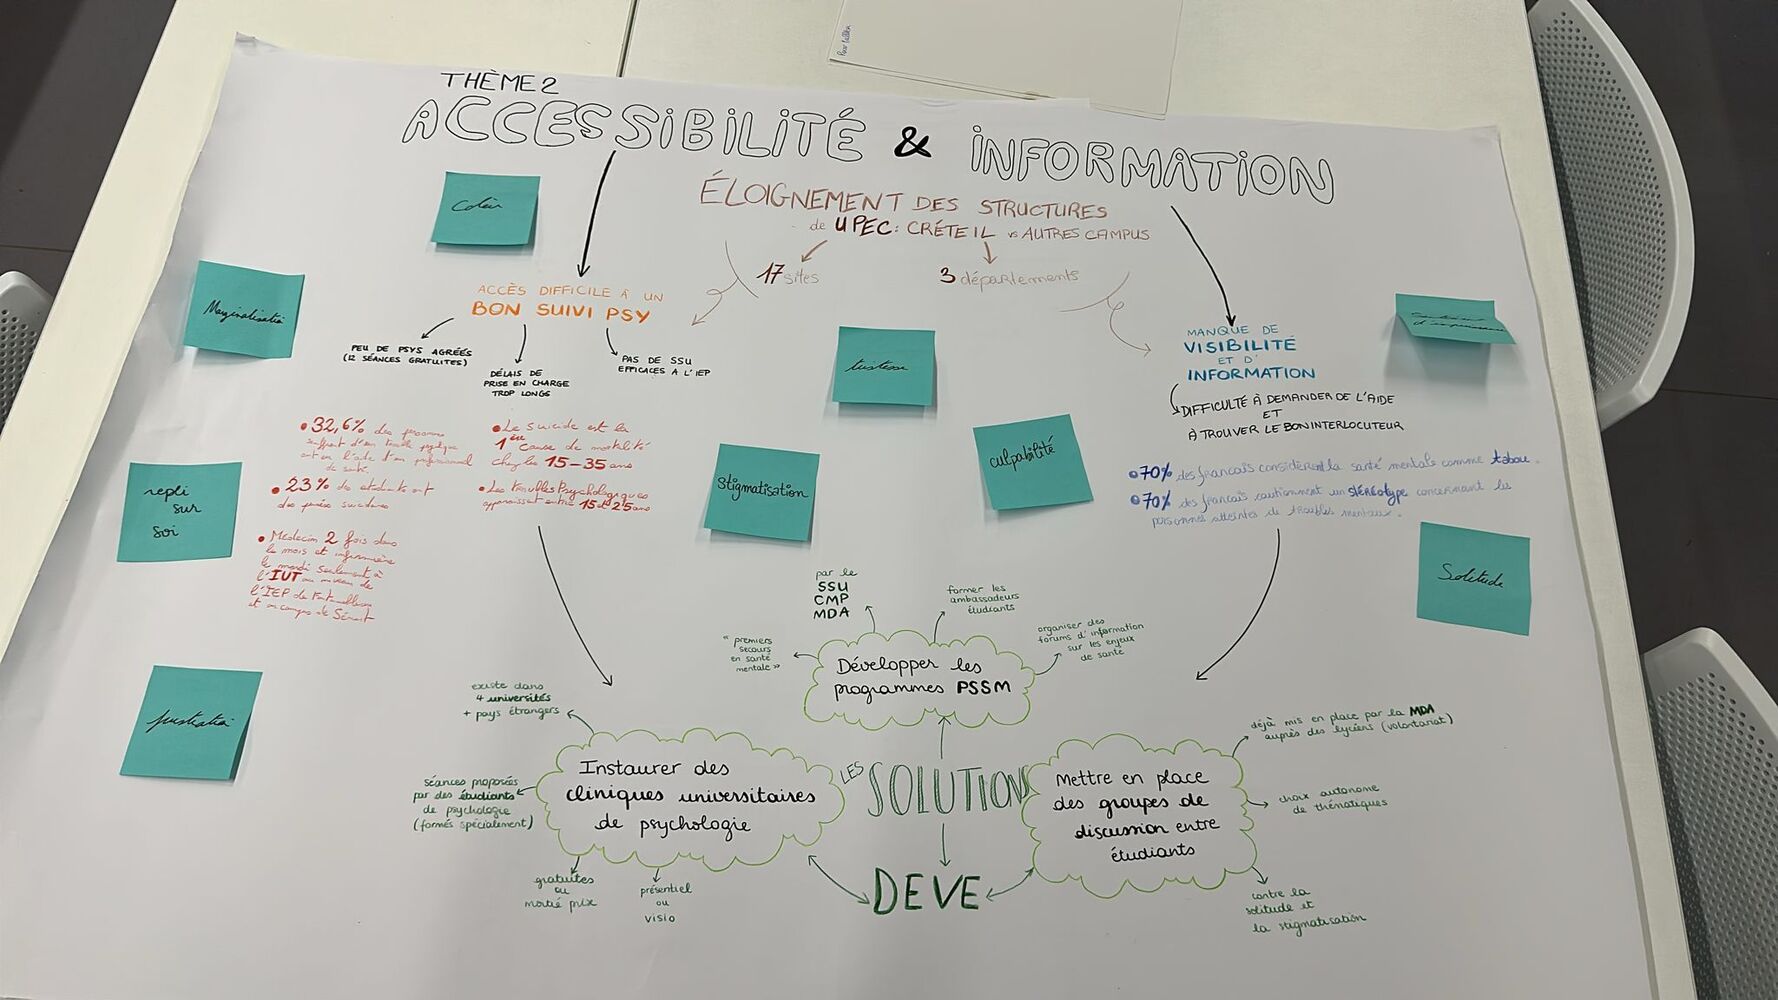 THÈME 2
ACCESSIBILITÉ & INFORMATION
ÉLOIGNEMENT DES STRUCTURES
de UPEC : CRÉTEIL vs AUTRES CAMPUS
17 sites
3 départements
Colère
Marginalisation
repli
sur
soi
frustration
tristesse
Stigmatisation
culpabilité
Solitude
ACCÈS DIFFICILE À UN
BON SUIVI PSY
PEU DE PSYS AGRÉÉS
(12 SÉANCES GRATUITES)
DÉLAIS DE
PRISE EN CHARGE
TROP LONGS
PAS DE SSU
EFFICACES A L'IEP
• 32,6% des personnes
souffrant d'un trouble psychique
ont eu l'aide d'un professionnel
de santé.
• 23% des étudiants ont
des pensées suicidaires
• Médecin 2 fois dans
le mois et infirmière
le mardi seulement à
l'IUT au niveau de
l'IEP de Fontainebleau
et au campus de Sénart
• Le suicide est la
1ère cause de mortalité
chez les 15-35 ans
• Les troubles Psychologiques
apparaissent entre 15 et 25 ans
MANQUE DE
VISIBILITÉ
ET D'
INFORMATION
DIFFICULTÉ À DEMANDER DE L'AIDE
ET
À TROUVER LE BON INTERLOCUTEUR
• 70% des français considèrent la santé mentale comme tabou.
• 70% des français cautionnent un stéréotype concernant les
personnes atteintes de troubles mentaux.
par le
SSU
CMP
MDA
former les
ambassadeurs
étudiants
"premiers
secours
en santé
mentale"
organiser des
forums d'information
sur les enjeux
de santé
Développer les
programmes PSSM
existe dans
4 universités
+ pays étrangers
séances proposées
par des étudiants
de psychologie
(formés spécialement)
Instaurer des
cliniques universitaires
de psychologie
gratuites
ou
moitié prix
présentiel
ou
visio
LES SOLUTIONS
DEVE
Mettre en place
des groupes de
discussion entre
étudiants
déjà mis en place par la MDA
auprès des lycéens (volontariat)
choix autonome
de thématiques
contre la
solitude et
la stigmatisation